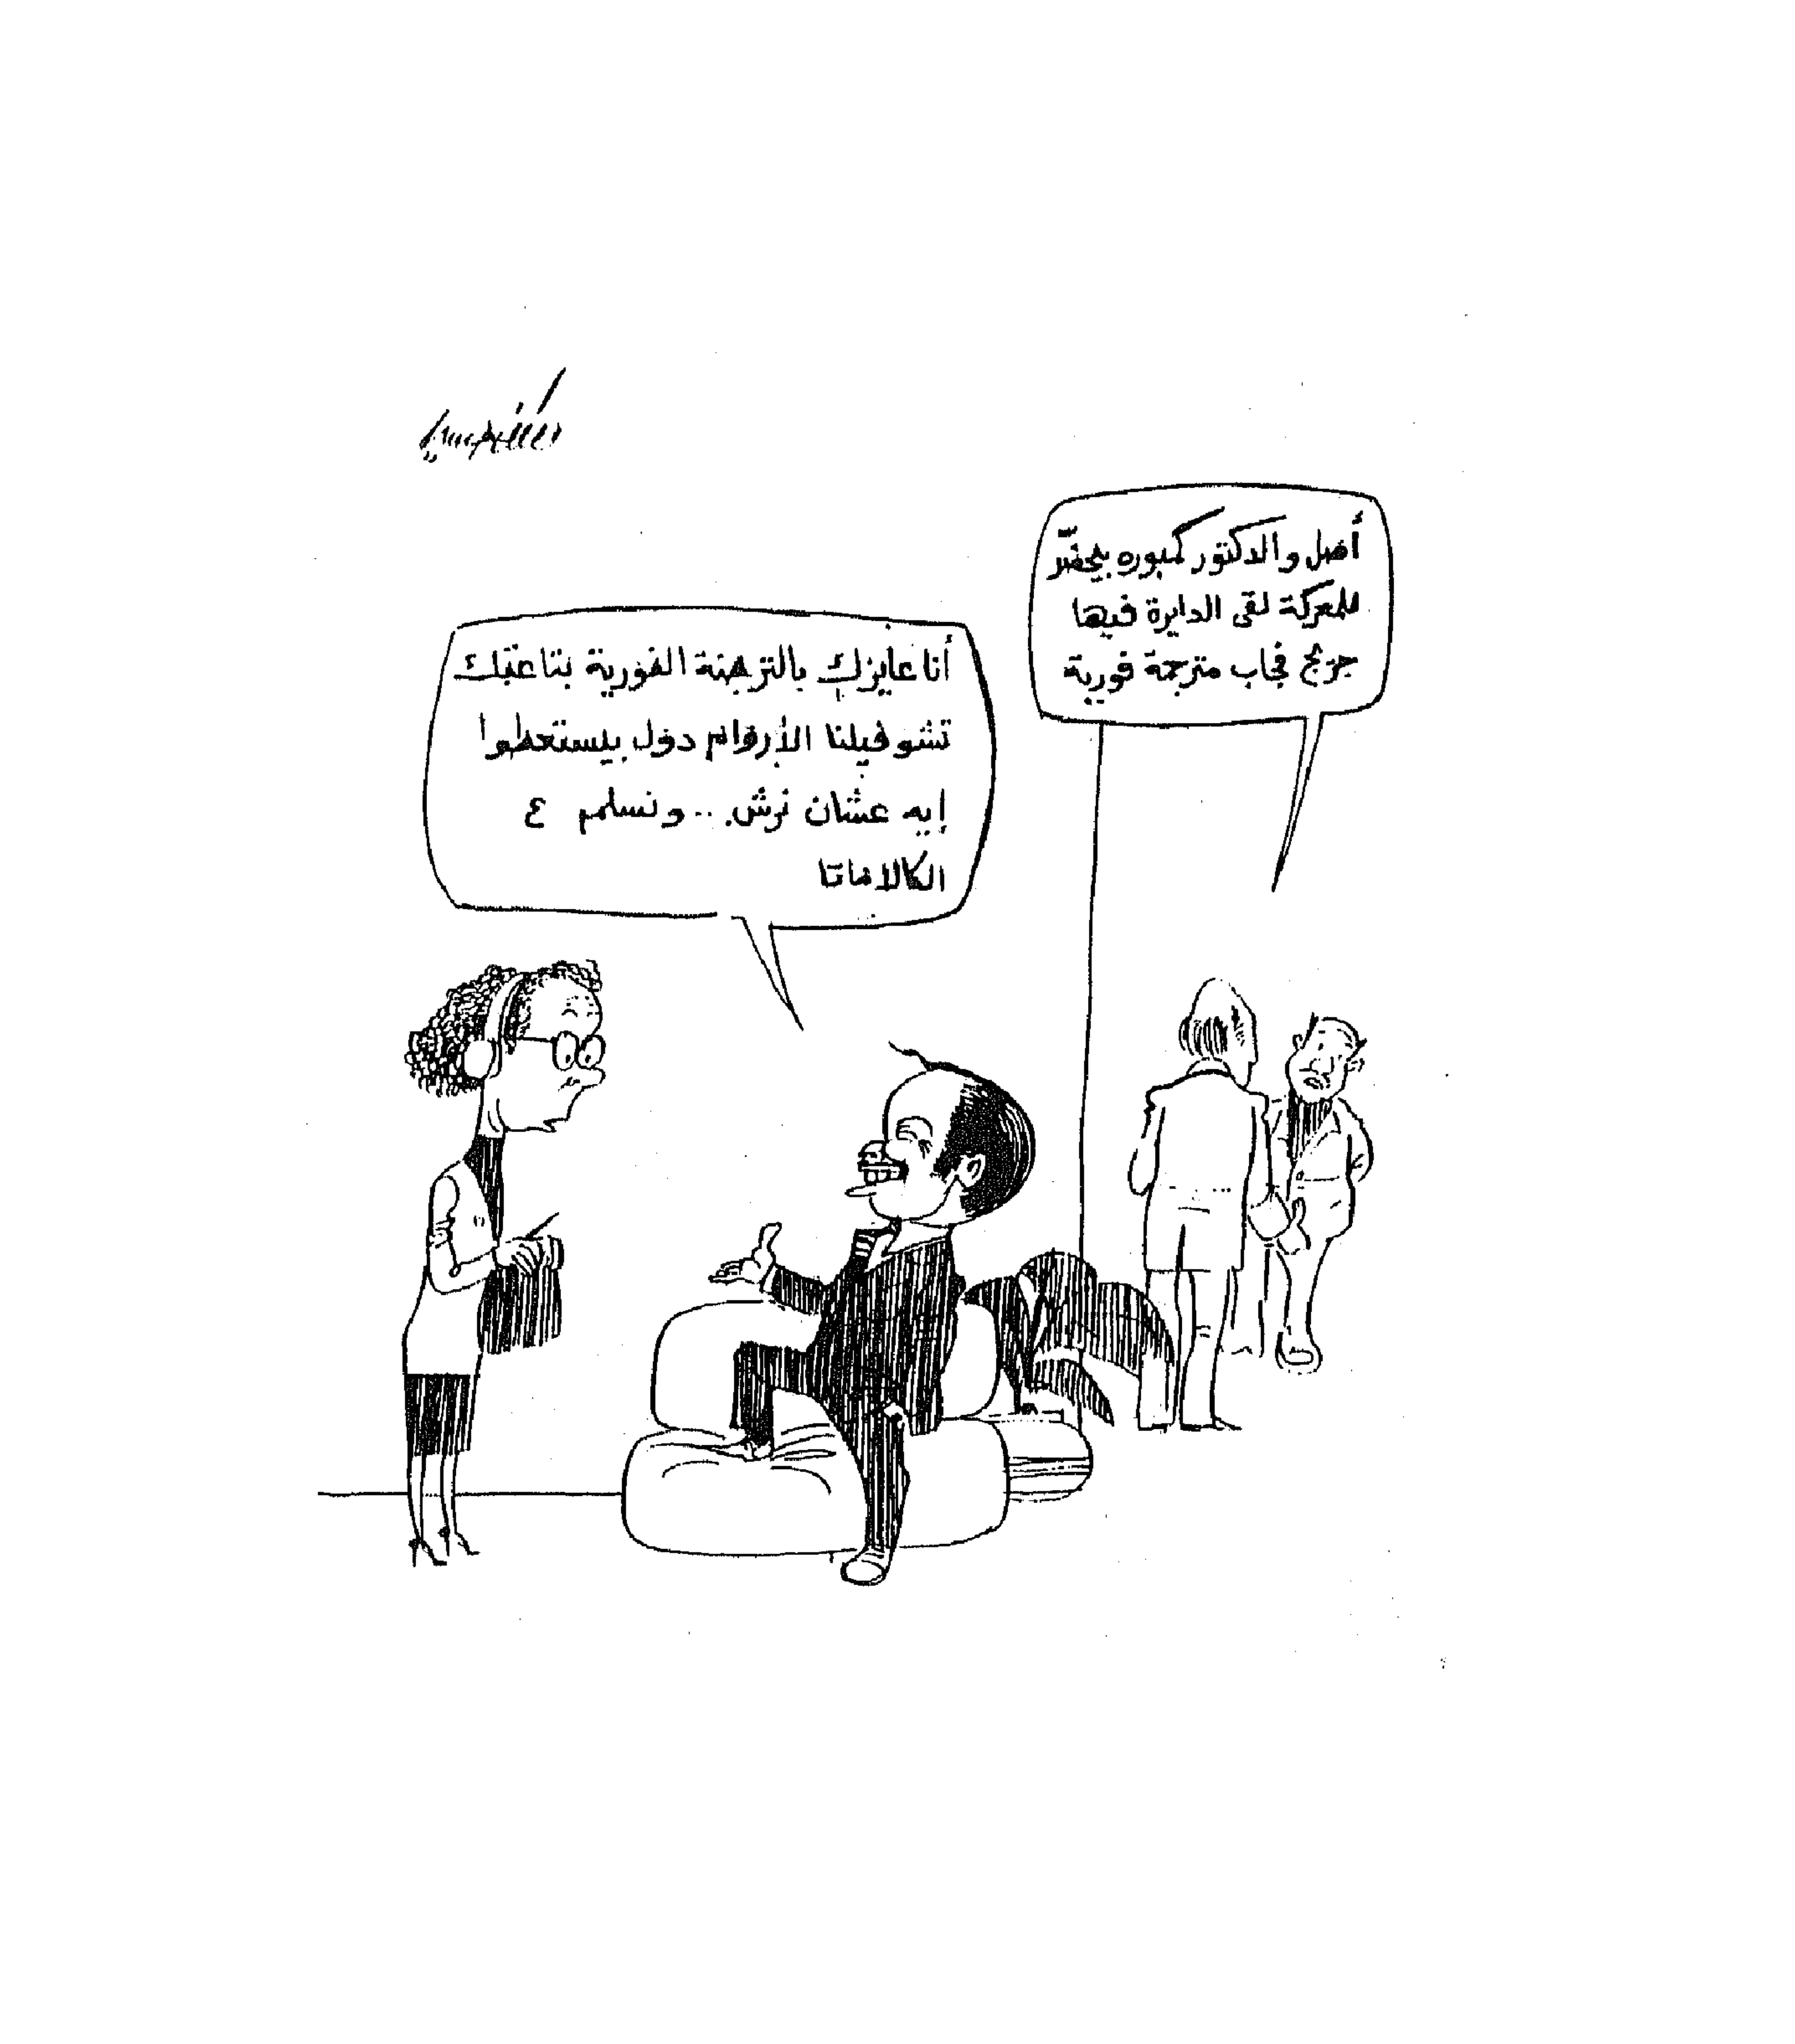 أصل والدكتور كمبوره بيحضّر
للمعركة لقى الدايرة فيها
جريج فجاب مترجمة فورية
أنا عايزك بالترجمة الفورية بتاعتك
تشوفيلنا الأروام دول بيستعطوا
إيه عشان نرش .. ونسلم ع
الكالاماتا